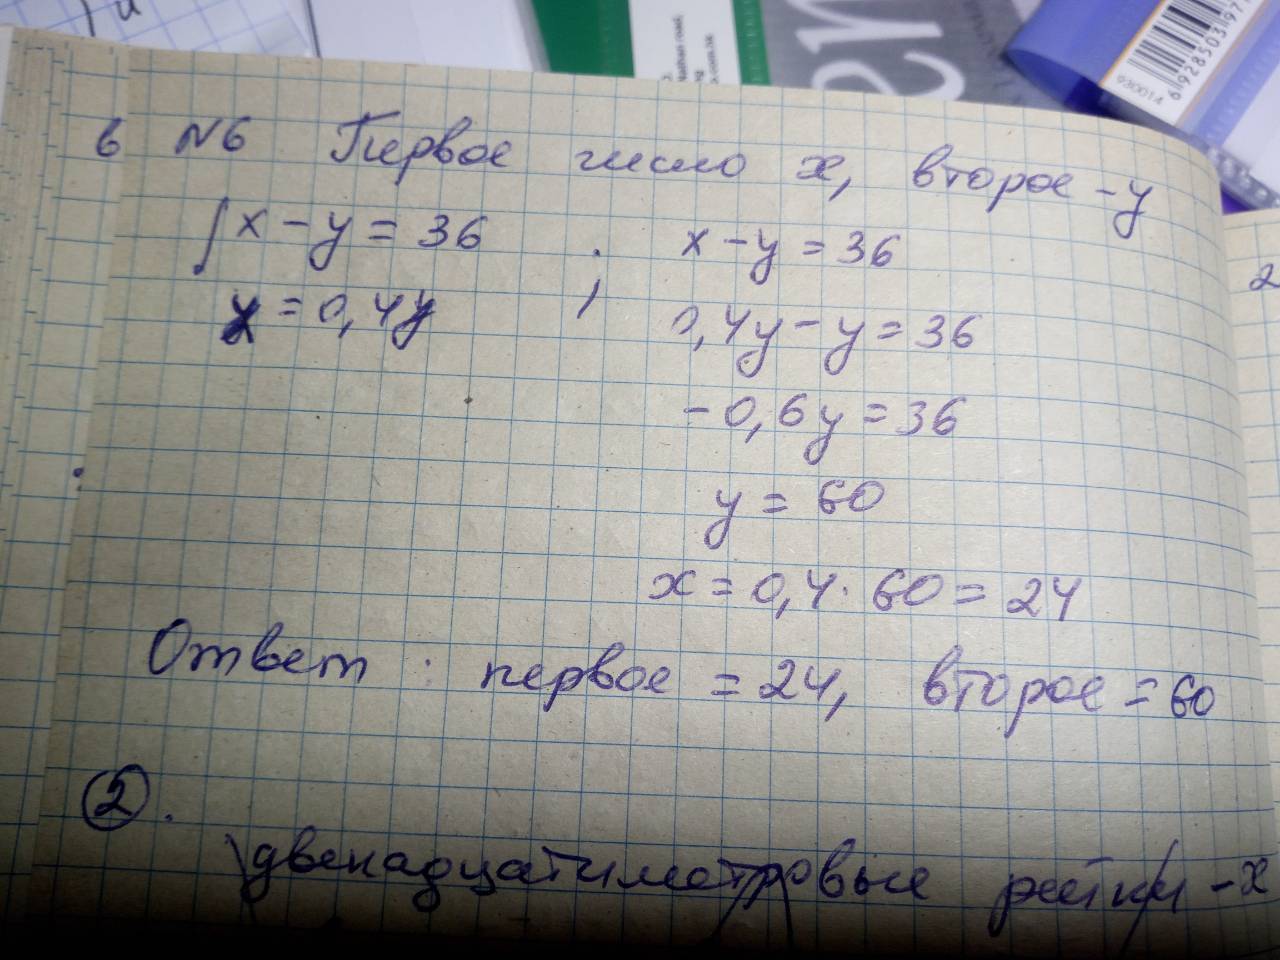 6 N6 Первое число x, второе - y
{ x - y = 36 ; x - y = 36
x = 0,4y 0,4y - y = 36
- 0,6y = 36
y = 60
x = 0,4 · 60 = 24
Ответ : первое = 24, второе = 60
2.
двенадцатиметровые рейки - x
2
930014
6928503 97